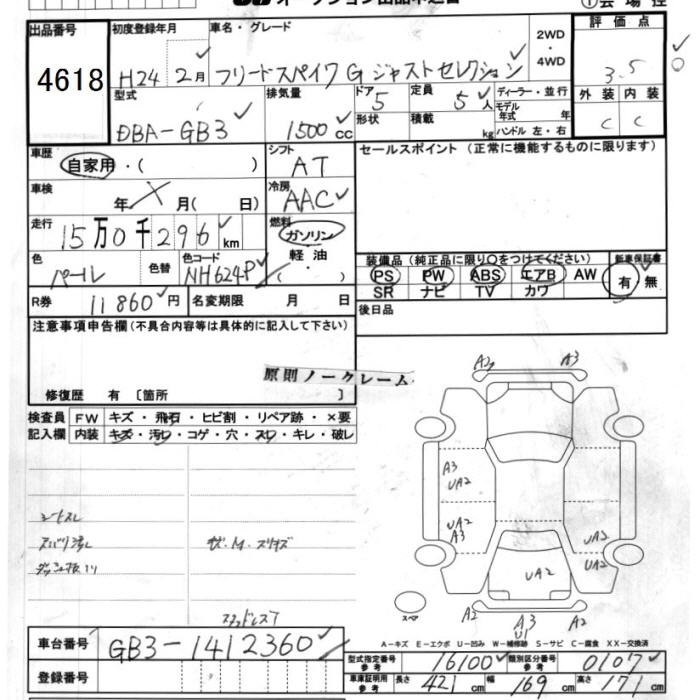 オークション出品申込書
出品番号 4618
初度登録年月 H24 2月
車名・グレード フリードスパイク G ジャストセレクション
2WD・4WD
評価点 3.5
外装 C 内装 C
型式 DBA-GB3
排気量 1500cc
ドア 5
形状
定員 5人
積載 kg
ディーラー・並行
モデル年式 年
ハンドル 左・右
車歴 自家用・( )
シフト AT
セールスポイント (正常に機能するものに限ります)
車検 年 月( 日)
冷房 AAC
走行 15万0千296km
燃料 ガソリン・軽油・( )
色 パール 色替
色コード NH624P
装備品 (純正品に限り○をつけてください)
新車保証書 有・無
PS PW ABS エアB AW
SR ナビ TV カワ
R券 11860円
名変期限 月 日
後日品
注意事項申告欄 (不具合内容等は具体的に記入して下さい)
原則ノークレーム
修復歴 有 〔箇所 〕
検査員記入欄
FW キズ・飛石・ヒビ割・リペア跡・×要
内装 キズ・汚レ・コゲ・穴・スレ・キレ・破レ
A2 A3
A3
UA2
UA2
A3
UA2
UA2
UA2
シートスレ
スペア
A2 A3 A2
U1
A-キズ E-エクボ U-凹み W-補修跡 S-サビ C-腐食 XX-交換済
車台番号 GB3-1412360
登録番号
型式指定番号 参考 16100
類別区分番号 参考 0107
車庫証明用 参考 長さ 421cm 幅 169cm 高さ 171cm